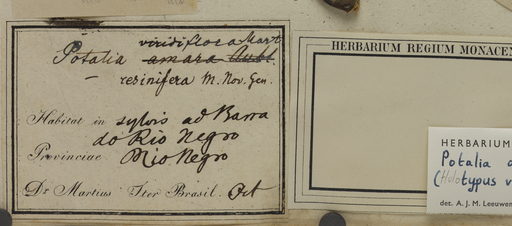 viridiflora Mart
Potalia amara Aubl.
resinifera M. Nov. Gen.
Habitat in sylvis ad Barra
do Rio Negro
Provinciae Rio Negro
Dr. Martius Iter Brasil. Oct
HERBARIUM REGIUM MONACEN
HERBARIUM
Potalia a
(Holotypus v
det. A. J. M. Leeuwen